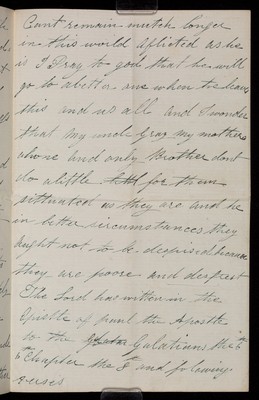 Cant remain mutch longer
in this world aflicted as he
is I Pray to god that he will
go to abetter one when he leaves
this and us all and I wonder
that my uncle Gray my mothers
alone and only Brother dont
do alittle for them
sittuated as they are and he
in better circumstances they
aught not to be despised because
they are poore and
The Lord has written in the
Epistle of paul the Apostle
to the Galatians the 6th
Chapter the 8th and folowing
verses